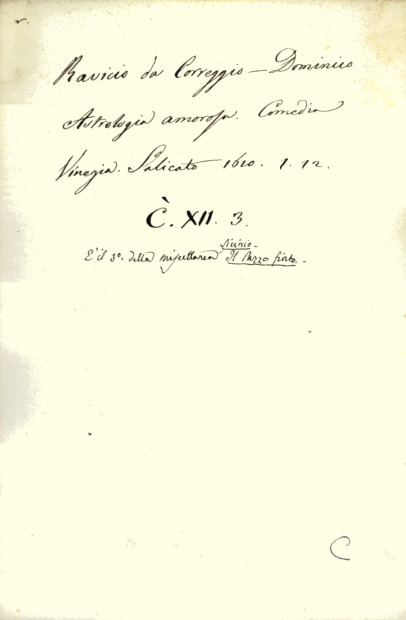 Ravicio da Correggio — Dominico
Astrologia amorosa. Comedia
Vinezia. Salicato 1610. 1. 12.
C. XII. 3.
Sicinio -
È il 3º. della miscellanea Il Pazzo finto. -
C